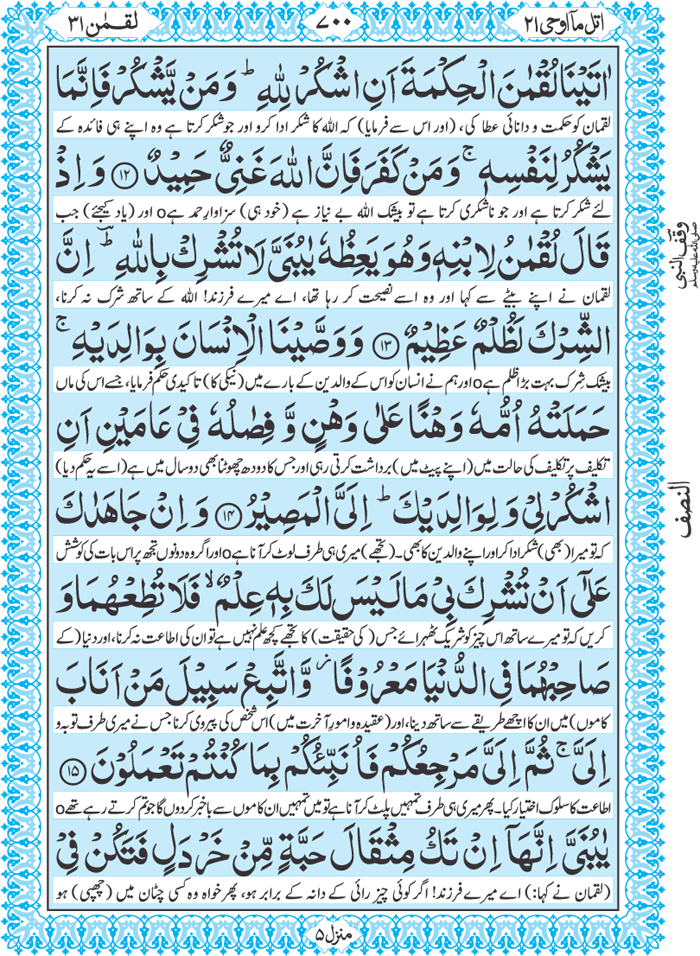 اتل ما اوحی ۲۱
۷۰۰
لقمٰن ۳۱
اٰتَيْنَا لُقْمٰنَ الْحِكْمَةَ اَنِ اشْكُرْ لِلّٰهِ ؕ وَ مَنْ يَّشْكُرْ فَاِنَّمَا
لقمان کو حکمت و دانائی عطا کی، (اور اس سے فرمایا) کہ اللہ کا شکر ادا کرو اور جو شکر کرتا ہے وہ اپنے ہی فائدہ کے
يَشْكُرُ لِنَفْسِهٖ ۚ وَ مَنْ كَفَرَ فَاِنَّ اللّٰهَ غَنِيٌّ حَمِيْدٌ ۝۱۲ وَ اِذْ
لئے شکر کرتا ہے اور جو ناشکری کرتا ہے تو بیشک اللہ بے نیاز ہے (خود ہی) سزاوارِ حمد ہے o اور (یاد کیجئے) جب
قَالَ لُقْمٰنُ لِابْنِهٖ وَ هُوَ يَعِظُهٗ يٰبُنَيَّ لَا تُشْرِكْ بِاللّٰهِ ؔؕ اِنَّ
لقمان نے اپنے بیٹے سے کہا اور وہ اسے نصیحت کر رہا تھا، اے میرے فرزند! اللہ کے ساتھ شرک نہ کرنا،
وقف النبی صلی اللہ علیہ وسلم
الشِّرْكَ لَظُلْمٌ عَظِيْمٌ ۝۱۳ وَ وَصَّيْنَا الْاِنْسَانَ بِوَالِدَيْهِ ۚ
بیشک شِرک بہت بڑا ظلم ہے o اور ہم نے انسان کو اس کے والدین کے بارے میں (نیکی کا) تاکیدی حکم فرمایا، جسے اس کی ماں
حَمَلَتْهُ اُمُّهٗ وَهْنًا عَلٰى وَهْنٍ وَّ فِصٰلُهٗ فِيْ عَامَيْنِ اَنِ
تکلیف پر تکلیف کی حالت میں (اپنے پیٹ میں) برداشت کرتی رہی اور جس کا دودھ چھوٹنا بھی دو سال میں ہے (اسے یہ حکم دیا)
اشْكُرْ لِيْ وَ لِوَالِدَيْكَ ؕ اِلَيَّ الْمَصِيْرُ ۝۱۴ وَ اِنْ جَاهَدٰكَ
النصف
کہ تو میرا (بھی) شکر ادا کر اور اپنے والدین کا بھی۔ (تجھے) میری ہی طرف لوٹ کر آنا ہے o اور اگر وہ دونوں تجھ پر اس بات کی کوشش
عَلٰۤى اَنْ تُشْرِكَ بِيْ مَا لَيْسَ لَكَ بِهٖ عِلْمٌ ۙ فَلَا تُطِعْهُمَا وَ
کریں کہ تو میرے ساتھ اس چیز کو شریک ٹھہرائے جس (کی حقیقت) کا تجھے کچھ علم نہیں ہے تو ان کی اطاعت نہ کرنا، اور دنیا (کے
صَاحِبْهُمَا فِي الدُّنْيَا مَعْرُوْفًا ؗ وَّ اتَّبِعْ سَبِيْلَ مَنْ اَنَابَ
کاموں) میں ان کا اچھے طریقے سے ساتھ دینا، اور (عقیدہ و امورِ آخرت میں) اس شخص کی پیروی کرنا جس نے میری طرف توبہ و
اِلَيَّ ۚ ثُمَّ اِلَيَّ مَرْجِعُكُمْ فَاُنَبِّئُكُمْ بِمَا كُنْتُمْ تَعْمَلُوْنَ ۝۱۵
اطاعت کا سلوک اختیار کیا۔ پھر میری ہی طرف تمہیں پلٹ کر آنا ہے تو میں تمہیں ان کاموں سے باخبر کر دوں گا جو تم کرتے رہے تھے o
يٰبُنَيَّ اِنَّهَاۤ اِنْ تَكُ مِثْقَالَ حَبَّةٍ مِّنْ خَرْدَلٍ فَتَكُنْ فِيْ
(لقمان نے کہا:) اے میرے فرزند! اگر کوئی چیز رائی کے دانہ کے برابر ہو، پھر خواہ وہ کسی چٹان میں (چھپی) ہو
منزل ۵